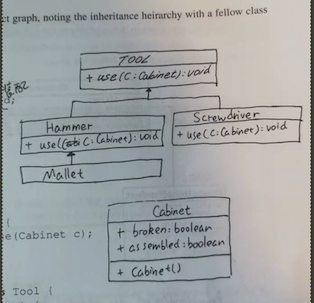 ct graph, noting the inheritance heirarchy with a fellow class
TOOL
+ use(C:Cabinet):void
Hammer
+ use(C:Cabinet):void
Screwdriver
+ use(C:Cabinet):void
Mallet
Cabinet
+ broken:boolean
+ assembled:boolean
+ Cabinet()
{
e(Cabinet c);
Tool {